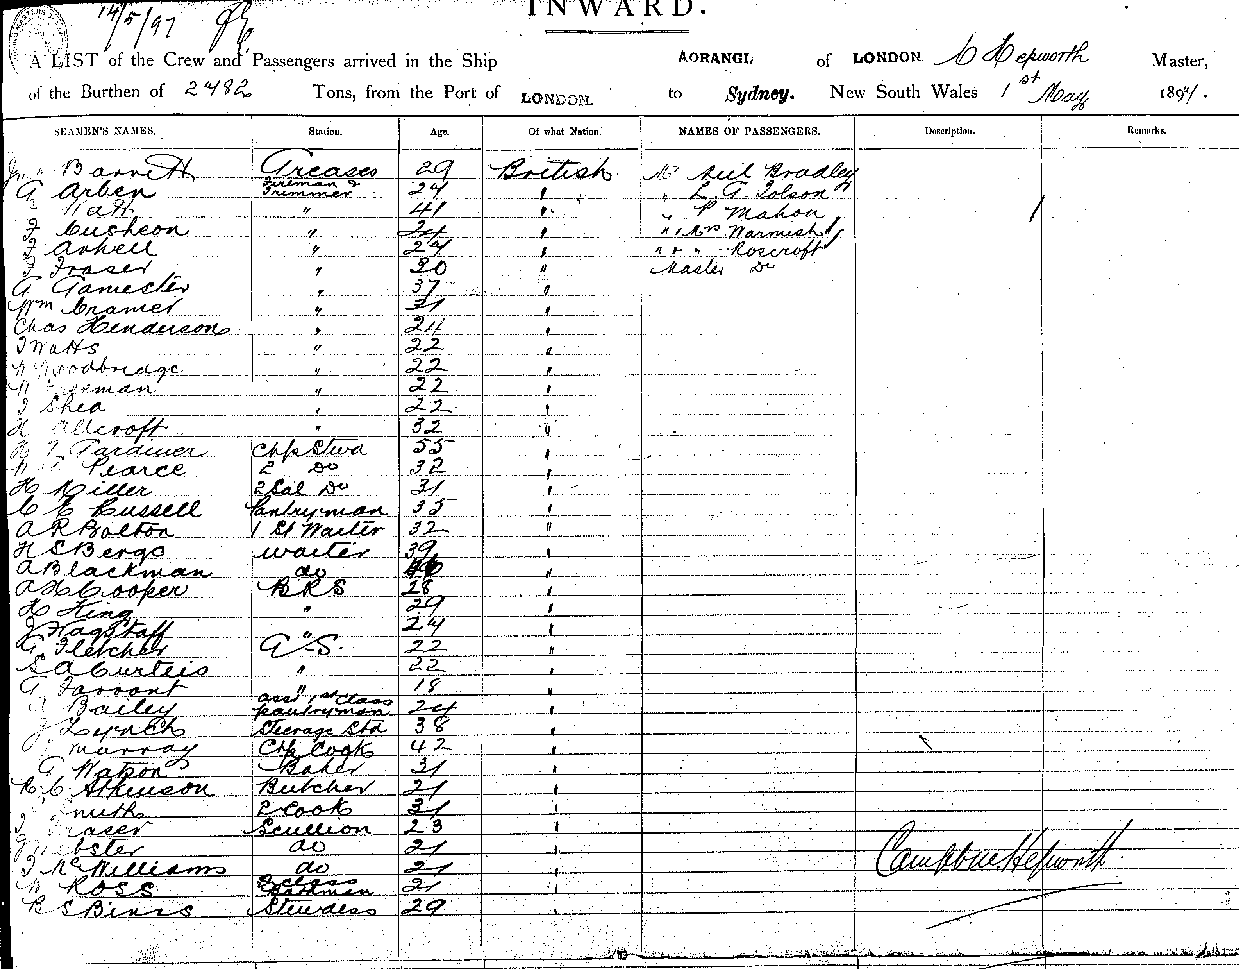 14/5/97
INWARD.
A LIST of the Crew and Passengers arrived in the Ship AORANGI, of LONDON C Hepworth Master,
of the Burthen of 2482 Tons, from the Port of LONDON. to Sydney. New South Wales 1st May 1897.
SEAMEN'S NAMES. Station. Age. Of what Nation. NAMES OF PASSENGERS. Description. Remarks.
Barrett Greaser 29 British Mr Neil Bradley
G Arben Fireman & Trimmer 24 " " L. G. Tolson
" 41 " " P Mahon
Cusheon " 24 " " " Mrs Warmish
Arkell " 24 " " " " Roscroft
Fraser " 30 " Master Do
G Gamester " 37 "
Wm Cramer " 31 "
Chas Henderson " 24 "
Watts " 22 "
Woodbridge " 22 "
" 22 "
Shea " 22 "
H Allcroft " 32 "
Gardiner Chf Stwd 55 "
Pearce 2 Do 32 "
H Miller 2 Sal Do 31 "
C C Russell Pantryman 35 "
A R Bolton 1 Sl Waiter 32 "
H S Bergs waiter 39 "
A Blackman do "
A H Cooper B R S 28 "
H King " 29 "
J Wagstaff " 24 "
G Fletcher G.S. 22 "
S A Curteis " 22 "
G Farrant " 18 "
Bailey asst 1st class pantryman 24 "
J Lynch Steerage Std 38 "
Murray Chf Cook 42 "
G Watson Baker 31 "
R C Atkinson Butcher 21 "
Smith 2 Cook 31 "
Fraser Scullion 23 "
Webster do 21 "
McWilliams do 21 "
Ross 2 class 21 "
R S Binns Stewdess 29 "
Campbell Hepworth